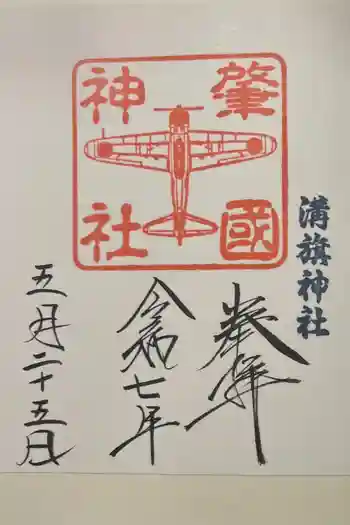 肇國
神社
溝旗神社
奉拝
令和七年
五月二十五日